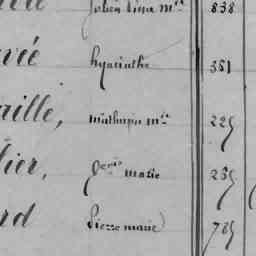 Julien Pina Mie 838
vié hyacinthe 351
aille, mathurin Mie 229
lier, marie 259
rd Pierre marie 789